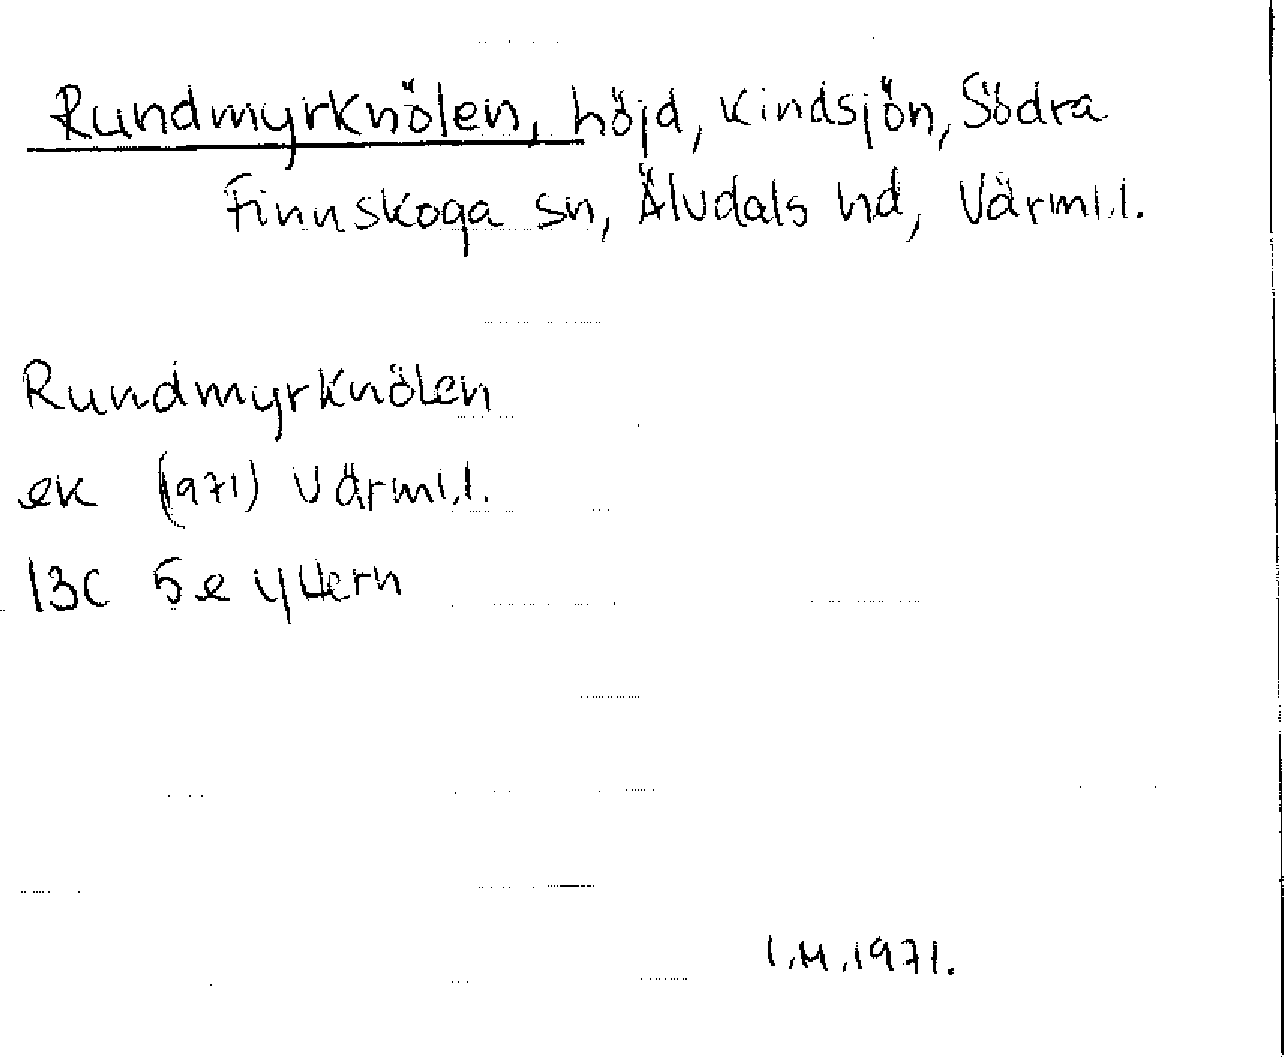 Rundmyrknölen, höjd, Kindsjön, Södra
Finnskoga sn, Älvdals hd, Värml.l.
Rundmyrknölen
ek (1971) Värml.l.
13C 5e yttern
I.M.1971.